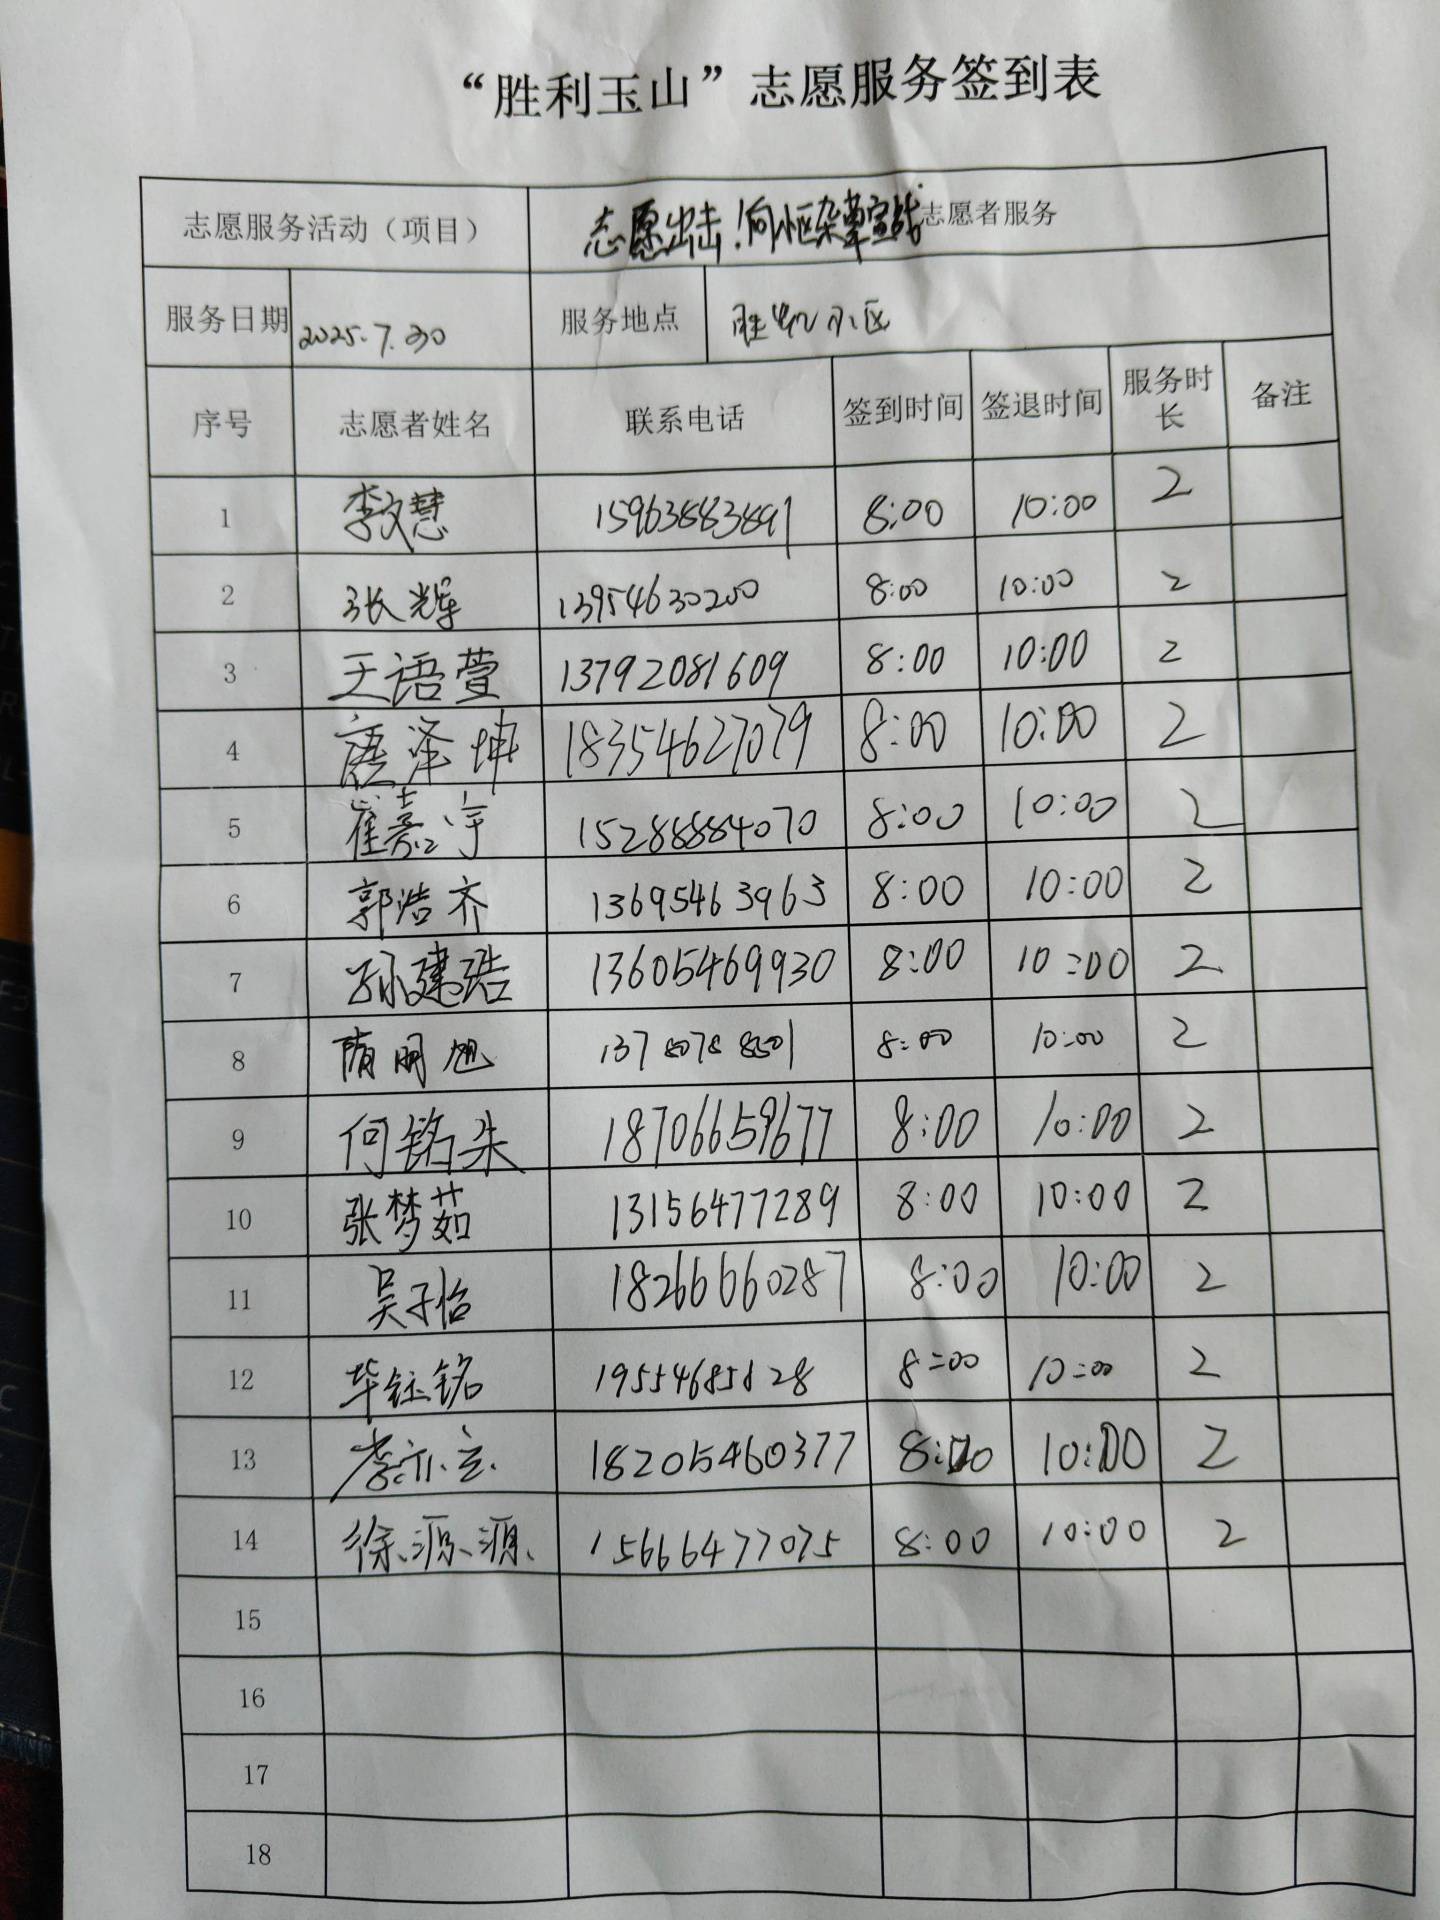 “胜利玉山”志愿服务签到表
志愿服务活动（项目） 志愿出击！向小区杂草宣战 志愿者服务
服务日期 2025.7.30 服务地点 胜利小区
序号 志愿者姓名 联系电话 签到时间 签退时间 服务时长 备注
1 李文慧 15963883891 8:00 10:00 2
2 张辉 13954630200 8:00 10:00 2
3 王语萱 13792081609 8:00 10:00 2
4 唐泽坤 18354627079 8:00 10:00 2
5 崔嘉宇 15288884070 8:00 10:00 2
6 郭浩齐 13695463963 8:00 10:00 2
7 孙建浩 13605469930 8:00 10:00 2
8 隋明旭 13780788501 8:00 10:00 2
9 何铭朱 18706659677 8:00 10:00 2
10 张梦茹 13156477289 8:00 10:00 2
11 吴子怡 18266660287 8:00 10:00 2
12 毕钰铭 19554685828 8:00 10:00 2
13 18205460377 8:00 10:00 2
14 徐源源 15666477075 8:00 10:00 2
15
16
17
18